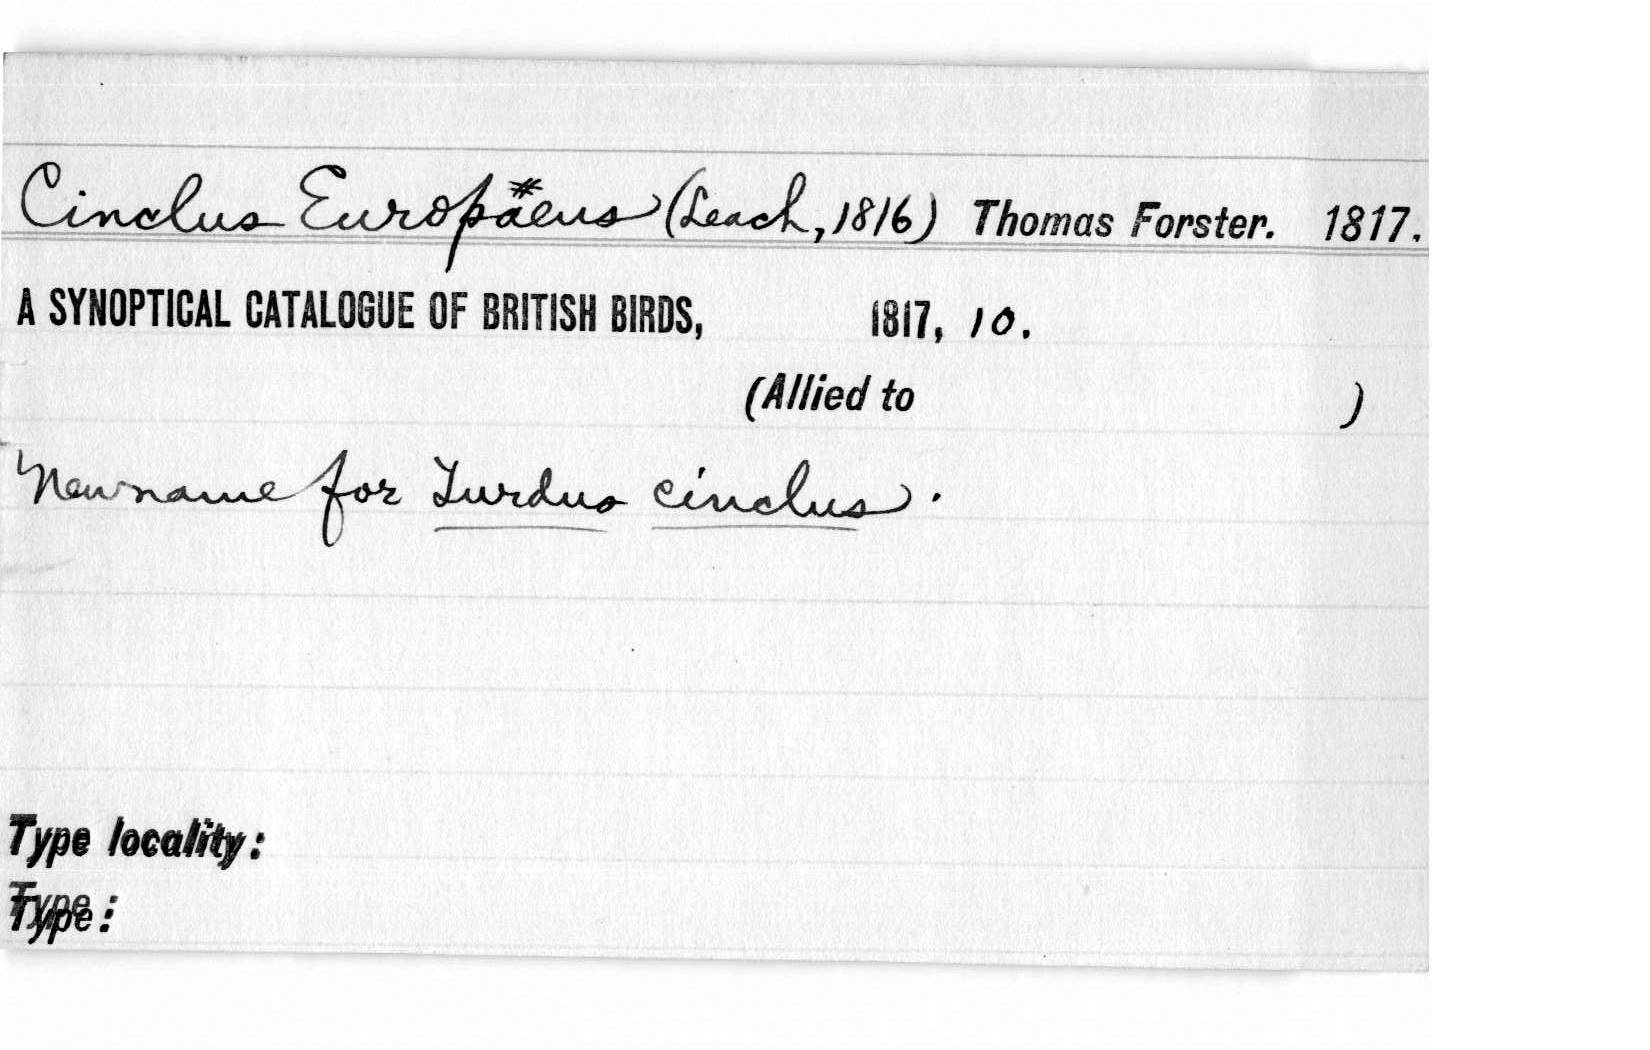 Cinclus Europäeus (Leach, 1816) Thomas Forster. 1817.
A SYNOPTICAL CATALOGUE OF BRITISH BIRDS, 1817, 10.
(Allied to )
New name for Turdus cinclus.
Type locality:
Type: